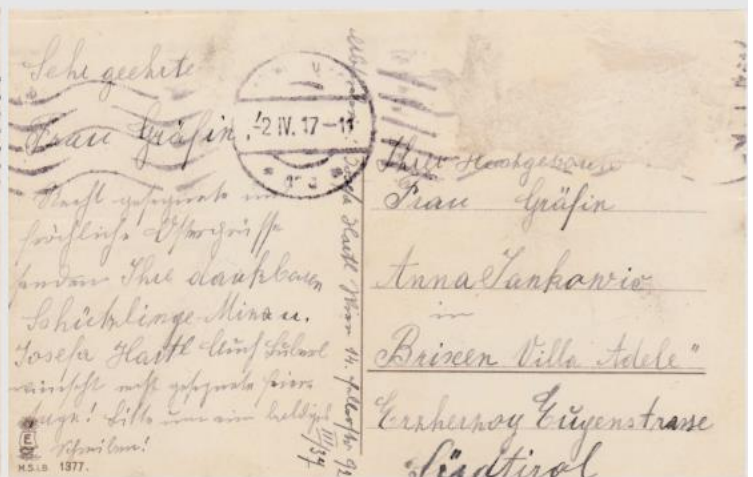 Sehr geehrte
Frau Gräfin!
Recht gesegnete und
fröhliche Ostergrüsse
senden Ihre dankbaren
Schützlinge Mina u.
Josefa Hartl Auch
wünscht recht gesegnete Feier-
tage! Bitte um ein baldiges
Schreiben!
M.S.i.B. 1377.
2 IV. 17-11
Josefa Hartl Wien 14.
III/37
Ihrer Hochgeboren
Frau Gräfin
Anna Jankovic
in
Brixen Villa Adele"
Erzherzog Eugenstrasse
Südtirol